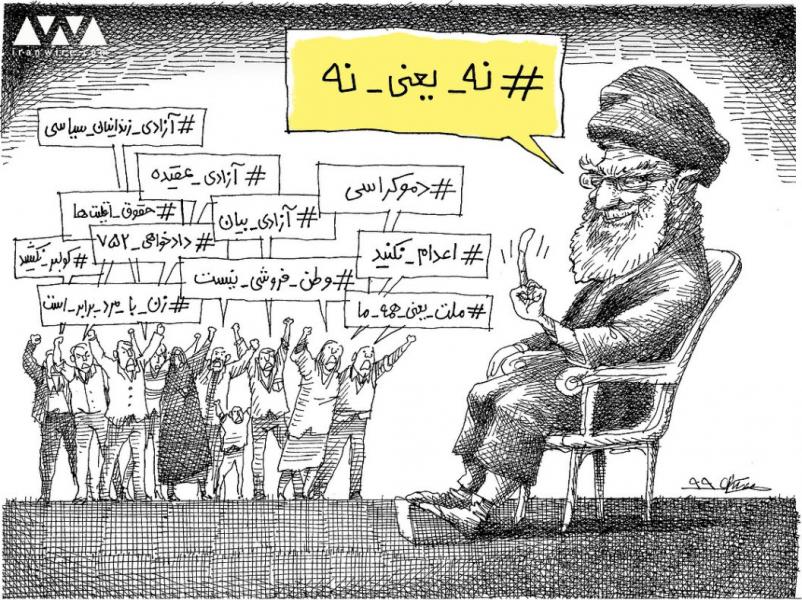 iranwire.com
#نه_یعنی_نه
#آزادی_زندانیان_سیاسی
#آزادی_عقیده
#دموکراسی
#حقوق_اقلیت‌ها
#آزادی_بیان
#دادخواهی_۷۵۲
#اعدام_نکنید
#کولبر_نکشید
#وطن_فروشی_نیست
#زن_با_مرد_برابر_است
#ملت_یعنی_همه_ما
۹۹